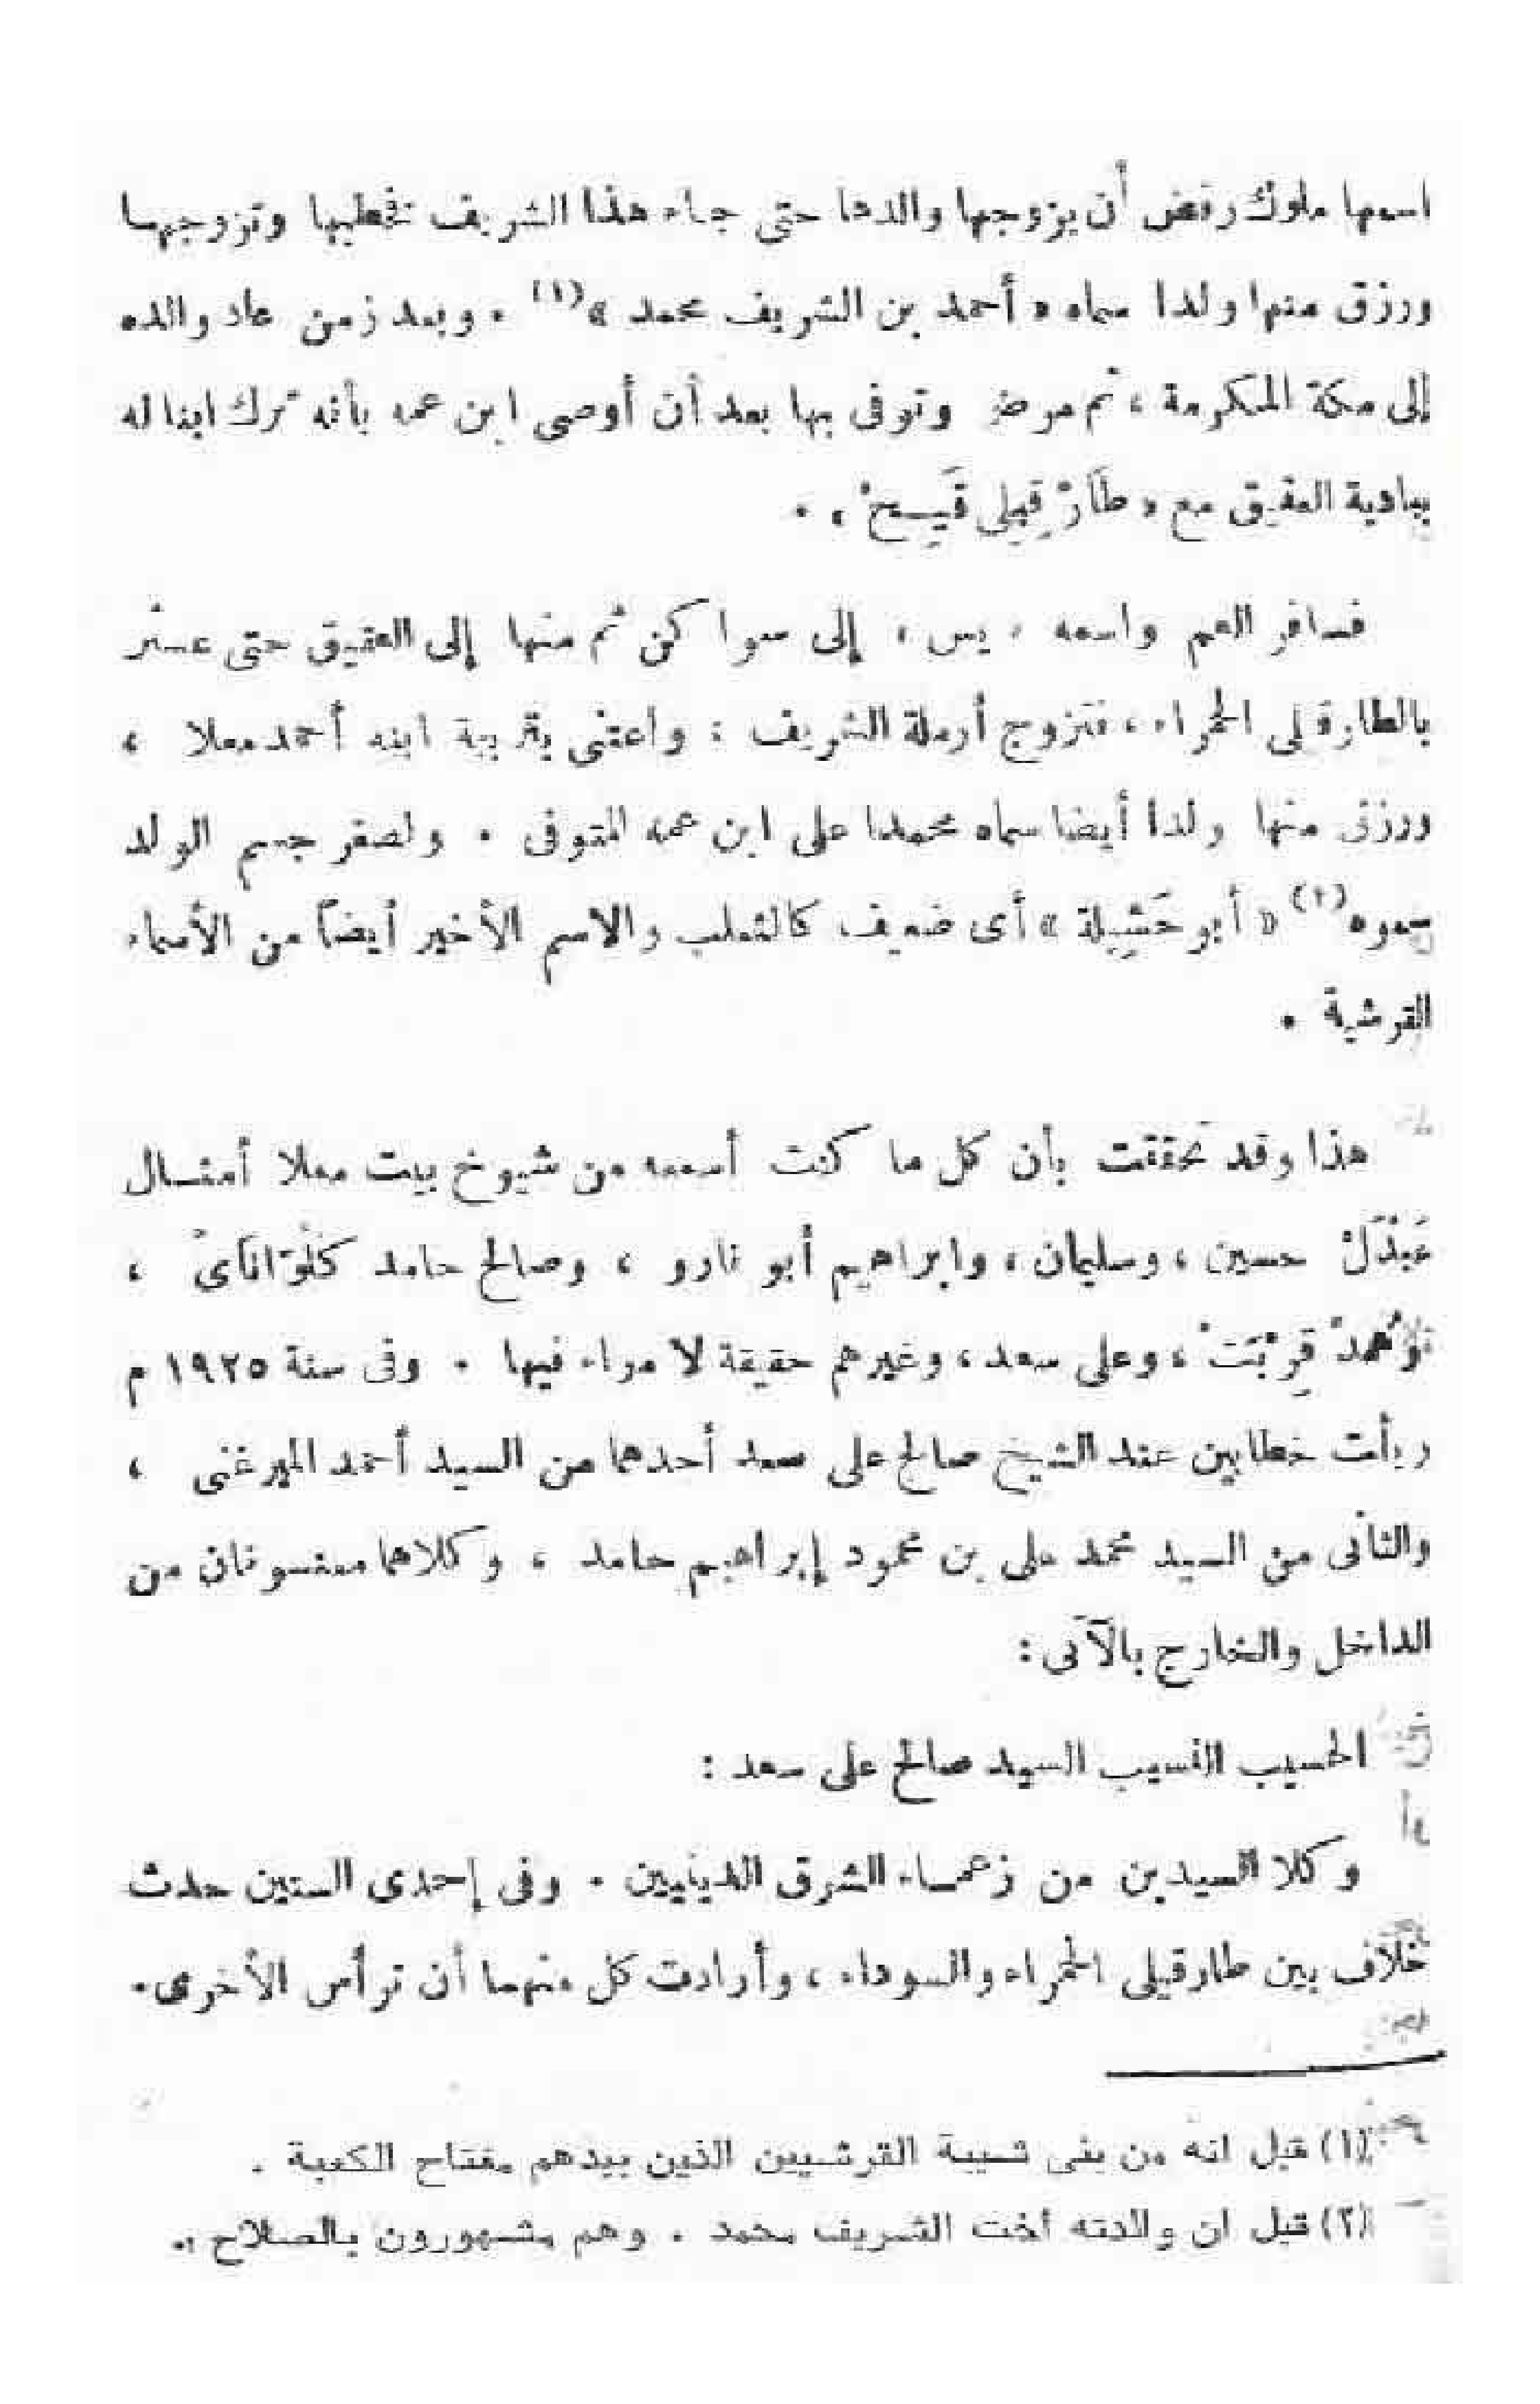 اسمها ملوك رفض أن يزوجها والدها حتى جاء هذا الشريف فخطبها وتزوجها
ورزق منها ولدا سماه « أحمد بن الشريف محمد »(١) . وبعد زمن عاد والده
إلى مكة المكرمة ، ثم مرض وتوفى بها بعد أن أوصى ابن عمه بأنه ترك ابنا له
ببادية العقيق مع « طَارْ قِيلِى قَيِـيحْ » .
فسافر العم واسمه « يس » إلى سواكن ثم منها إلى العقيق حتى عـثر
بالطارقيلى الحمراء ، فتزوج أرملة الشريف ؛ واعتنى بتربية ابنه أحمد معلا ،
ورزق منها ولدا أيضا سماه محمدا على ابن عمه المتوفى . ولصغر جسم الولد
سموه(٢) « أبو حَشِيلة » أى ضعيف كالثعلب والاسم الأخير أيضاً من الأسماء
القرشية .
هذا وقد تحققت بأن كل ما كنت أسمعه من شيوخ بيت معلا أمثـال
عَبْدَلْ حسين ، وسليمان ، وابراهيم أبو نارو ، وصالح حامد كَلُوَانَاىْ ،
قِرْبَتْ ، وعلى سعد ، وغيرهم حقيقة لا مراء فيها . وفى سنة ١٩٢٥ م
رأيت خطابين عند الشيخ صالح على سعد أحدهما من السيد أحمد الميرغنى ،
والثانى من السيد محمد على بن محمود إبراهيم حامد ، وكلاهما معنونان من
الداخل والخارج بالآتى :
الحسيب النسيب السيد صالح على سعد :
وكلا السيدين من زعمـاء الشرق الدينيين . وفى إحدى السنين حدث
خلاف بين طارقيلى الحمراء والسوداء ، وأرادت كل منهما أن ترأس الأخرى .
(١) قيل انه من بنى شيبة القرشيين الذين بيدهم مفتاح الكعبة .
(٢) قيل ان والدته أخت الشريف محمد . وهم مشهورون بالصلاح .